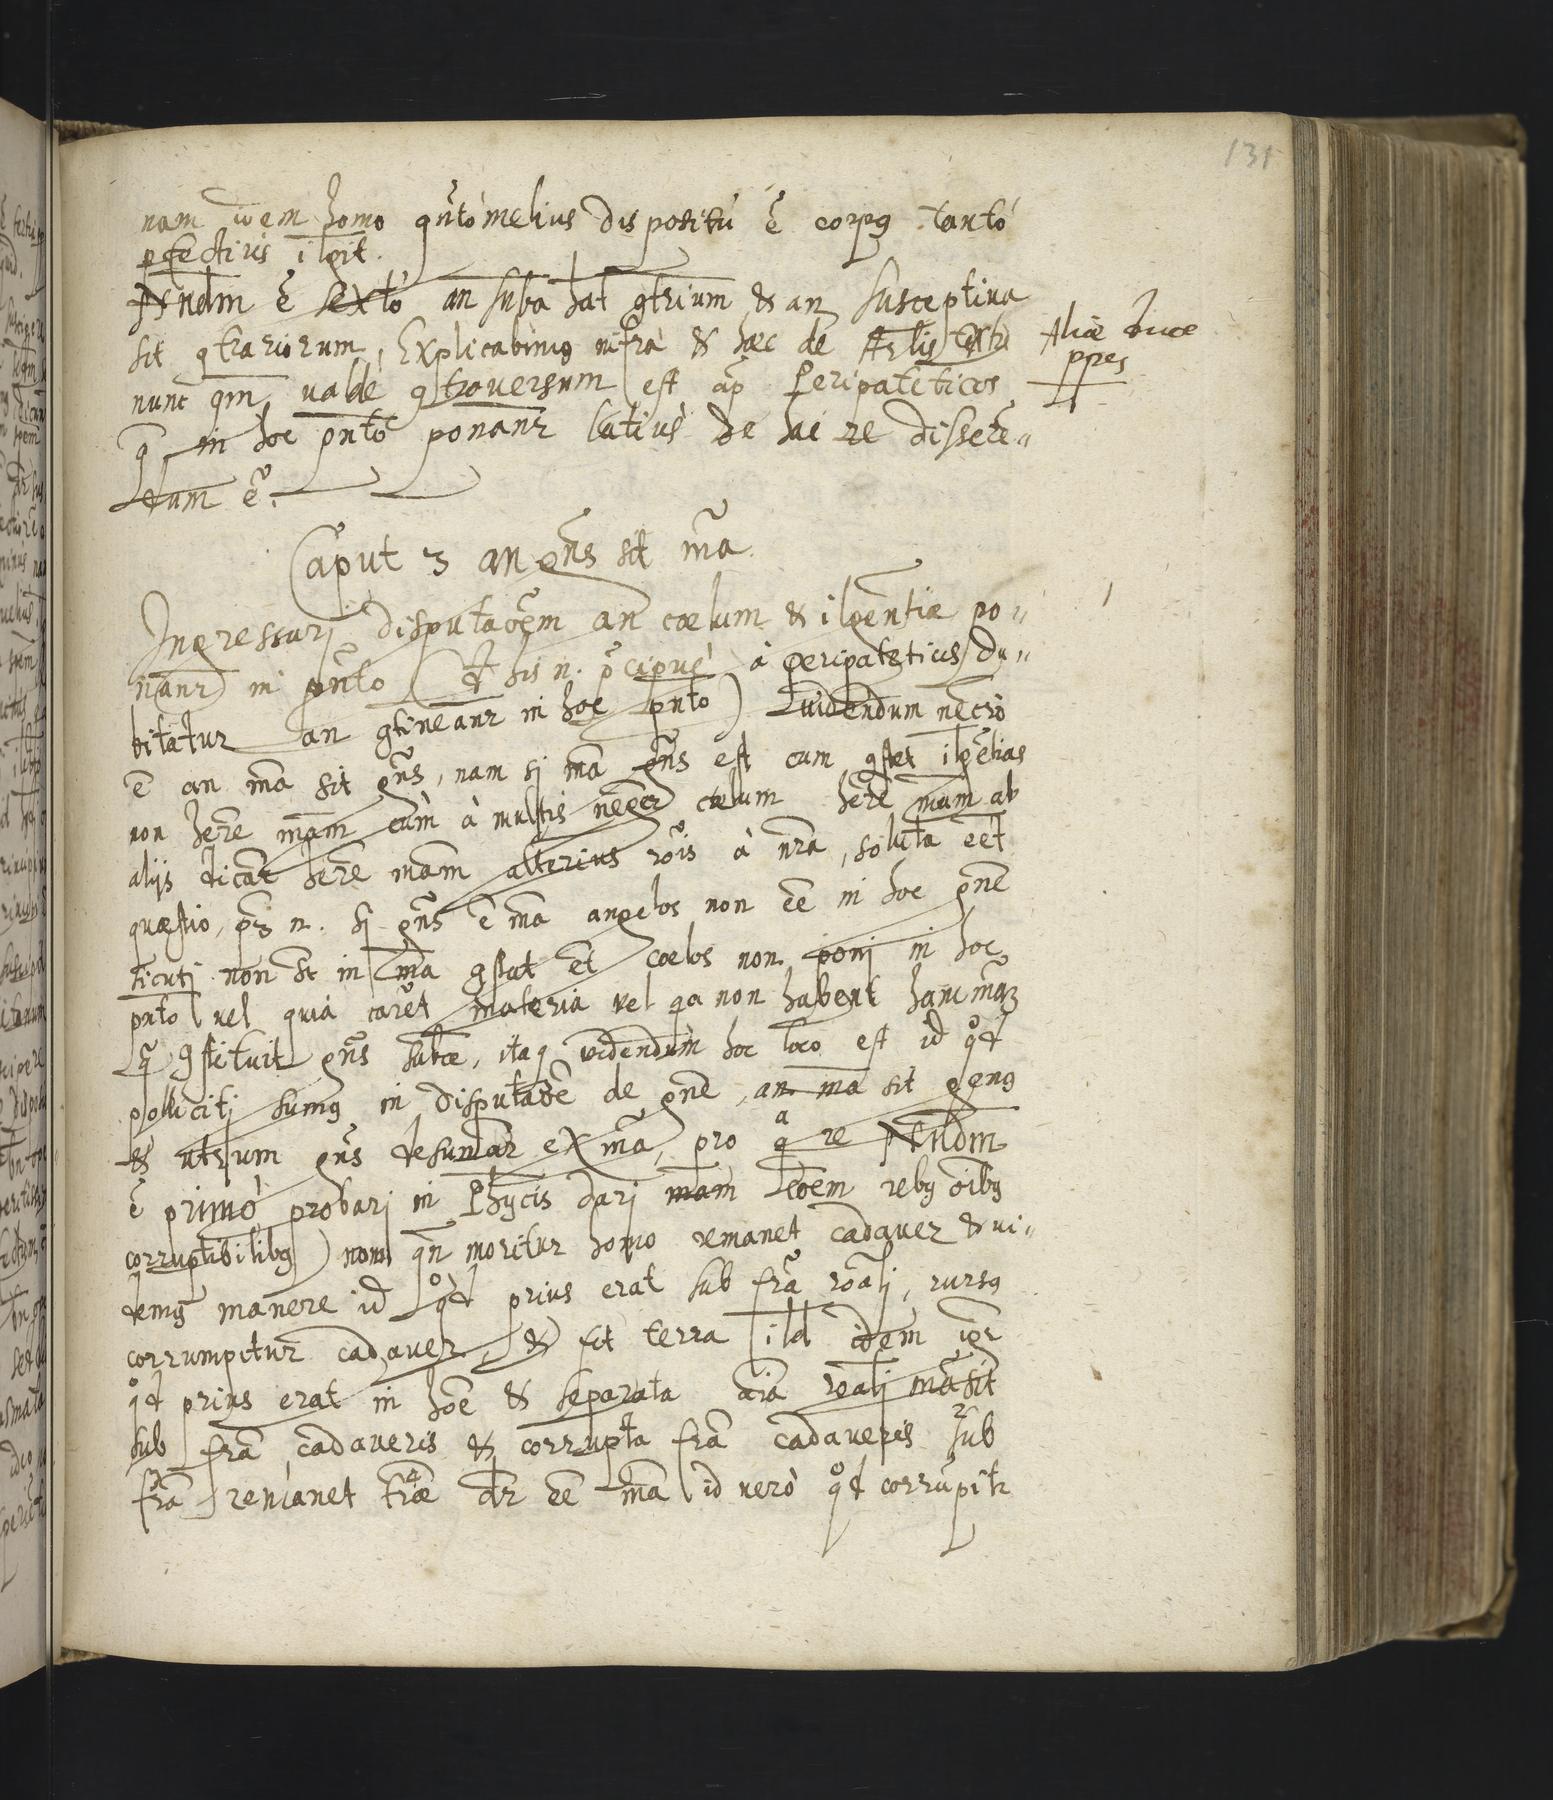 131
nam idem homo qñto melius dispositũ ẽ corpꝯ tantò
ꝑfectius ilgit.
Nndm̃ ẽ sextò an suba hat ꝯtrium & an susceptiua
sit ꝯtrariorum, Explicabimꝯ infrà & hæc de Arlis textu
Aliæ duæ
ppes
nunc qm̃ valdè ꝯtroversum est ap̃ Peripateticos
q̃ in hoc pñto ponanr latiùs de hac re disserẽ„
dum ẽ.
Caput 3 an gñs sit m̃a
Ingressuri disputaõem an cœlum & ilgentiæ po„
nanr in pñto (d̃ his n. p̃cipuè à peripateticis du„
bitatur an ꝯtineanr in hoc pñto) videndum necriò
ẽ an m̃a sit gñs, nam si m̃a gñs est cum ꝯstet ilgẽtias
non here m̃am cùm à multis negetr cœlum here m̃am ab
aliis dicat̃ here mam alterius rõis à nr̃a, soluta eẽt
quæstio, pꝫ n. si gñs ẽ m̃a angelos non eẽ in hoc gñe
sicuti non st̃ in m̃a ꝯstat et̃ cœlos non poni in hoc
pñto vel quia carẽt materia vel qa non habent hanc m̃aꝫ
q̃ ꝯstituit gñs subæ, itaq videndum hoc loco est id qd̊
polliciti sumꝯ in disputaõe de gñe, an m̃a sit genꝯ
& utrum gñs desumar ex m̃a, pro qa re Nndm̃
ẽ primò probari in Phycis dari m̃am eõem rebꝯ oĩbꝯ
corruptibilibꝯ) nam qñ moritur homo remanet cadaver & vi„
demꝯ manere id qd̊ prius erat sub fr̃a roãli, rursꝯ
corrumpitur cadaver, & fit terra ild idem igr
qd̊ prius erat in hoẽ & separata aĩa roãli mãsit
sub fr̃a cadaveris & corrupta fr̃a cadaveris sub
fr̃a remanet træ dr̃ eẽ m̃a id verò qd̊ corrũpitr